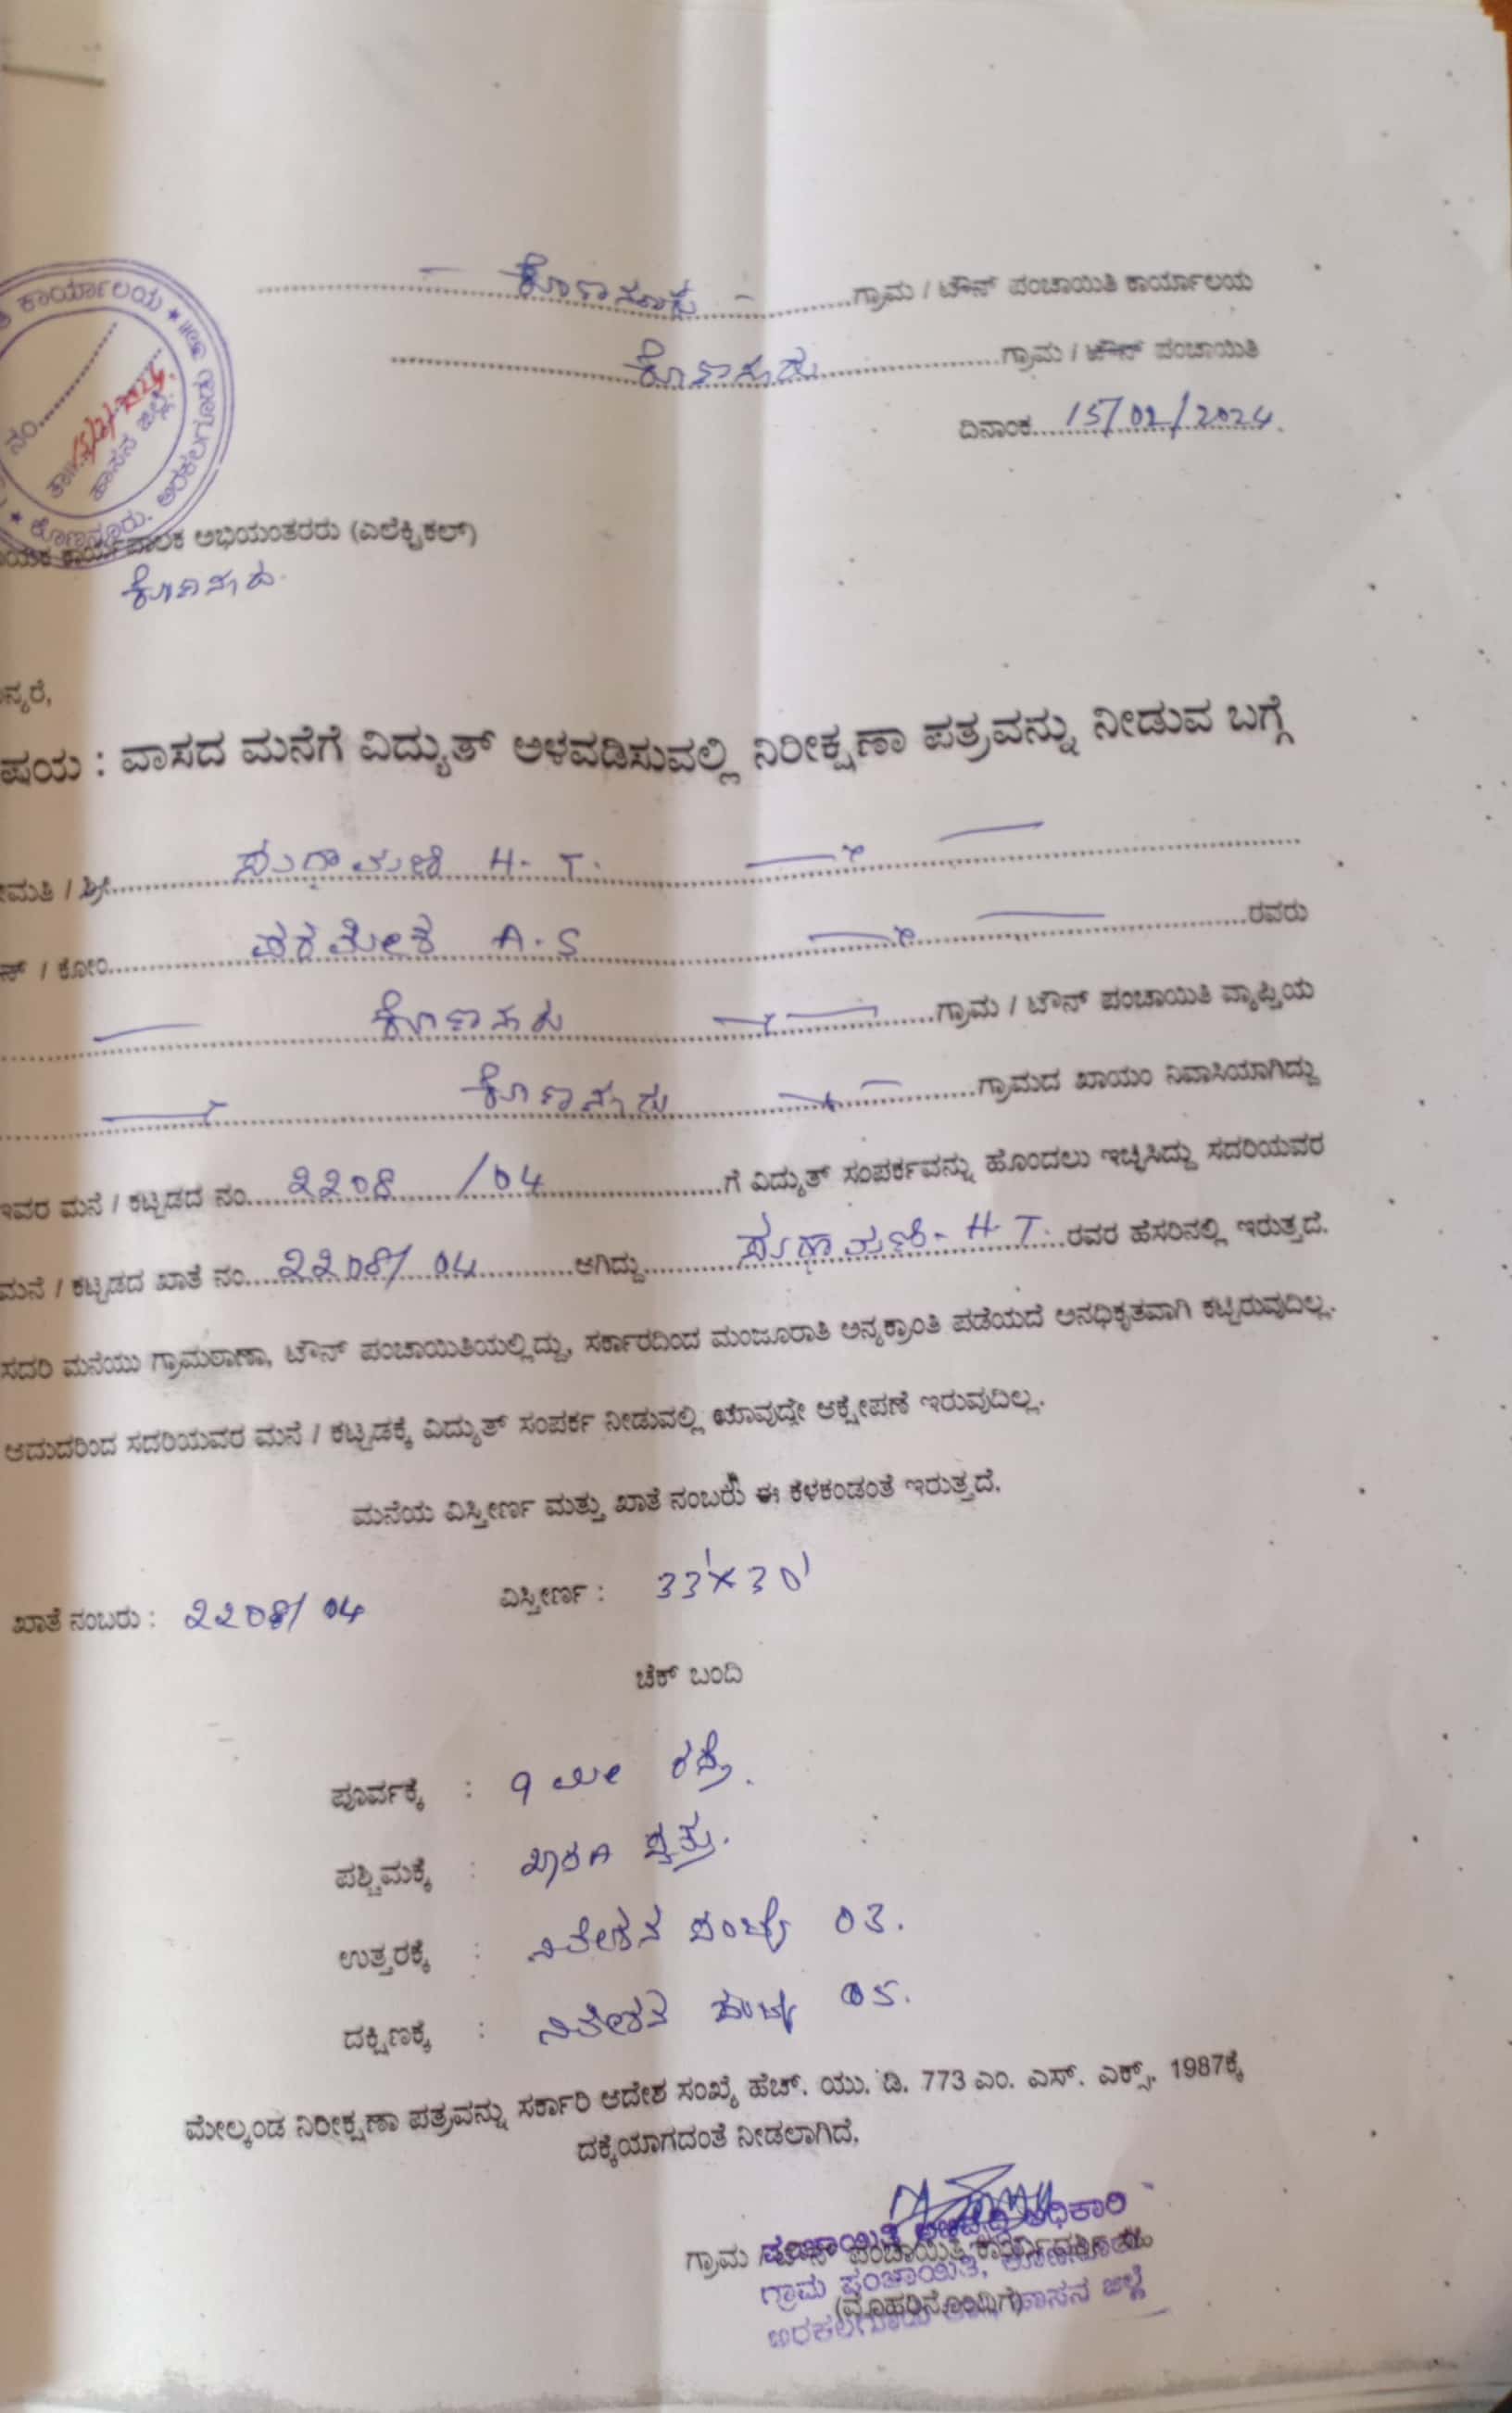 ಕೊಣನೂರು ಗ್ರಾಮ / ಟೌನ್ ಪಂಚಾಯಿತಿ ಕಾರ್ಯಾಲಯ
ಕೊಣನೂರು ಗ್ರಾಮ / ಟೌನ್ ಪಂಚಾಯಿತಿ
ದಿನಾಂಕ 15/02/2024
ಕಾರ್ಯಾಲಯ * ಕೊಣನೂರು. ಅರಕಲಗೂಡು ತಾ||
ನಂ.
ಹಾಸನ ಜಿಲ್ಲೆ.
ಕಾರ್ಯಪಾಲಕ ಅಭಿಯಂತರರು (ಎಲೆಕ್ಟ್ರಿಕಲ್)
ಕೊಣನೂರು.
ನ್ಯರೆ,
ಷಯ : ವಾಸದ ಮನೆಗೆ ವಿದ್ಯುತ್ ಅಳವಡಿಸುವಲ್ಲಿ ನಿರೀಕ್ಷಣಾ ಪತ್ರವನ್ನು ನೀಡುವ ಬಗ್ಗೆ
ಮತಿ / ಶ್ರೀ H. T.
/ ಕೋಂ A.S ರವರು
ಕೊಣನೂರು ಗ್ರಾಮ / ಟೌನ್ ಪಂಚಾಯಿತಿ ವ್ಯಾಪ್ತಿಯ
ಕೊಣನೂರು ಗ್ರಾಮದ ಖಾಯಂ ನಿವಾಸಿಯಾಗಿದ್ದು
ಇವರ ಮನೆ / ಕಟ್ಟಡದ ನಂ. 2208 /04 ಗೆ ವಿದ್ಯುತ್ ಸಂಪರ್ಕವನ್ನು ಹೊಂದಲು ಇಚ್ಛಿಸಿದ್ದು ಸದರಿಯವರ
ಮನೆ / ಕಟ್ಟಡದ ಖಾತೆ ನಂ. 2208/ 04 ಆಗಿದ್ದು H. T. ರವರ ಹೆಸರಿನಲ್ಲಿ ಇರುತ್ತದೆ.
ಸದರಿ ಮನೆಯು ಗ್ರಾಮಠಾಣಾ, ಟೌನ್ ಪಂಚಾಯಿತಿಯಲ್ಲಿದ್ದು, ಸರ್ಕಾರದಿಂದ ಮಂಜೂರಾತಿ ಅನ್ಯಕ್ರಾಂತಿ ಪಡೆಯದೆ ಅನಧಿಕೃತವಾಗಿ ಕಟ್ಟಿರುವುದಿಲ್ಲ.
ಆದುದರಿಂದ ಸದರಿಯವರ ಮನೆ / ಕಟ್ಟಡಕ್ಕೆ ವಿದ್ಯುತ್ ಸಂಪರ್ಕ ನೀಡುವಲ್ಲಿ ಯಾವುದೇ ಆಕ್ಷೇಪಣೆ ಇರುವುದಿಲ್ಲ.
ಮನೆಯ ವಿಸ್ತೀರ್ಣ ಮತ್ತು ಖಾತೆ ನಂಬರು ಈ ಕೆಳಕಂಡಂತೆ ಇರುತ್ತದೆ.
ಖಾತೆ ನಂಬರು : 2208/ 04 ವಿಸ್ತೀರ್ಣ : 33'X30'
ಚೆಕ್ ಬಂದಿ
ಪೂರ್ವಕ್ಕೆ : 9 ಮೀ ರಸ್ತೆ.
ಪಶ್ಚಿಮಕ್ಕೆ : ಸ್ವತ್ತು.
ಉತ್ತರಕ್ಕೆ : ನಿವೇಶನ ಸಂಖ್ಯೆ 03.
ದಕ್ಷಿಣಕ್ಕೆ : ನಿವೇಶನ ಸಂಖ್ಯೆ 05.
ಮೇಲ್ಕಂಡ ನಿರೀಕ್ಷಣಾ ಪತ್ರವನ್ನು ಸರ್ಕಾರಿ ಆದೇಶ ಸಂಖ್ಯೆ ಹೆಚ್. ಯು. ಡಿ. 773 ಎಂ. ಎಸ್. ಎಕ್ಸ್. 1987ಕ್ಕೆ
ದಕ್ಕೆಯಾಗದಂತೆ ನೀಡಲಾಗಿದೆ.
ಪಂಚಾಯಿತಿ ಅಭಿವೃದ್ಧಿ ಅಧಿಕಾರಿ
ಗ್ರಾಮ / ಟೌನ್ ಪಂಚಾಯಿತಿ ಕಾರ್ಯದರ್ಶಿ ಸಹಿ
ಗ್ರಾಮ ಪಂಚಾಯಿತಿ, ಕೊಣನೂರು
(ಮೊಹರಿನೊಂದಿಗೆ)
ಅರಕಲಗೂಡು ತಾ|| ಹಾಸನ ಜಿಲ್ಲೆ